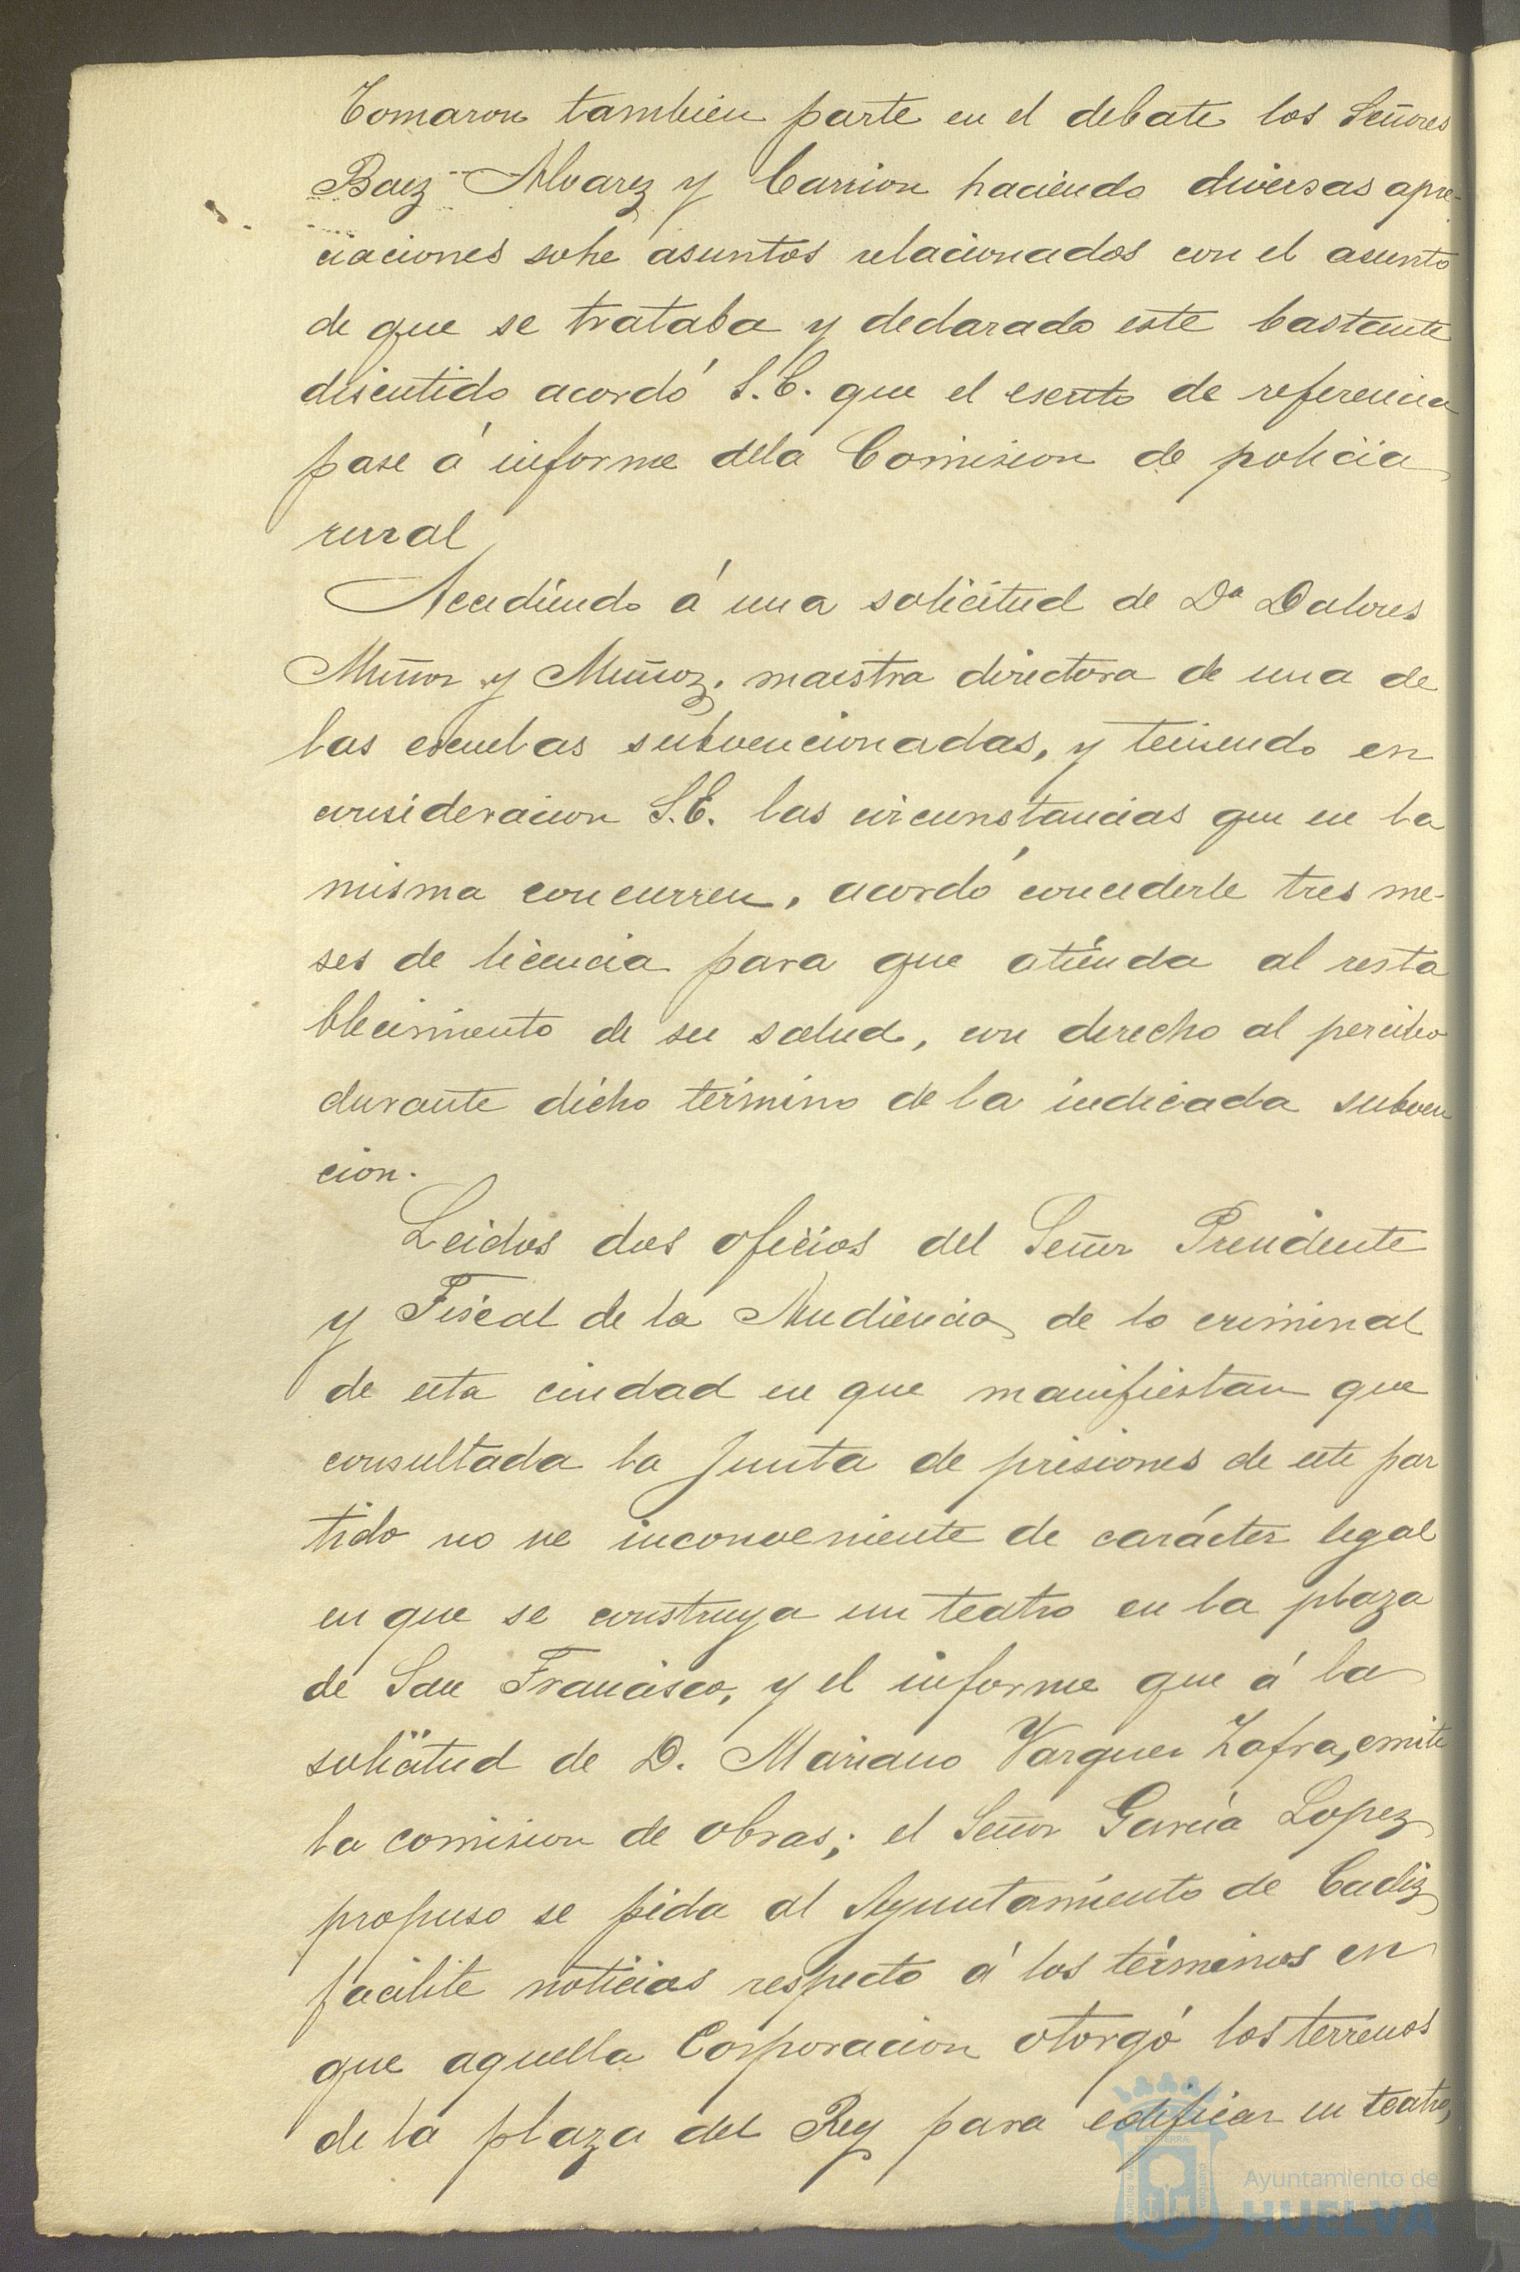 Tomaron tambien parte en el debate los Señores
Baez Alvarez y Carrion haciendo diversas apre-
ciaciones sobre asuntos relacionados con el asunto
de que se trataba y declarado este bastante
discutido acordó S.E. que el escrito de referencia
pase á informe dela Comision de policia
rural
Accediendo á una solicitud de Dª Dolores
Muñoz y Muñoz, maestra directora de una de
las escuelas subvencionadas, y teniendo en
consideracion S.E. las circunstancias que en la
misma concurren, acordó concederle tres me-
ses de licencia para que atienda al resta
blecimiento de su salud, con derecho al percibo
durante dicho término de la indicada subven
cion.
Leidos dos oficios del Señor Presidente
y Fiscal de la Audiencia de lo criminal
de esta ciudad en que manifiestan que
consultada la Junta de prisiones de este par
tido no ve inconveniente de carácter legal
en que se construya un teatro en la plaza
de San Francisco, y el informe que á la
solicitud de D. Mariano Vazquez Zafra, emite
la comision de obras; el Señor García Lopez
propuso se pida al Ayuntamiento de Cadiz
facilite noticias respecto á los términos en
que aquella Corporacion otorgó los terrenos
de la plaza del Rey para edificar un teatro,
Ayuntamiento de
HUELVA